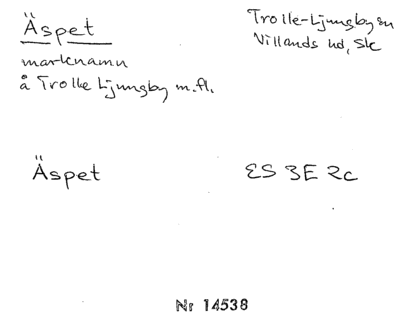 Äspet
Trolle-Ljungby sn
Villands hd, Sk
marknamn
å Trolle Ljungby m.fl.
Äspet
ES 3E 2c
Nr 14538